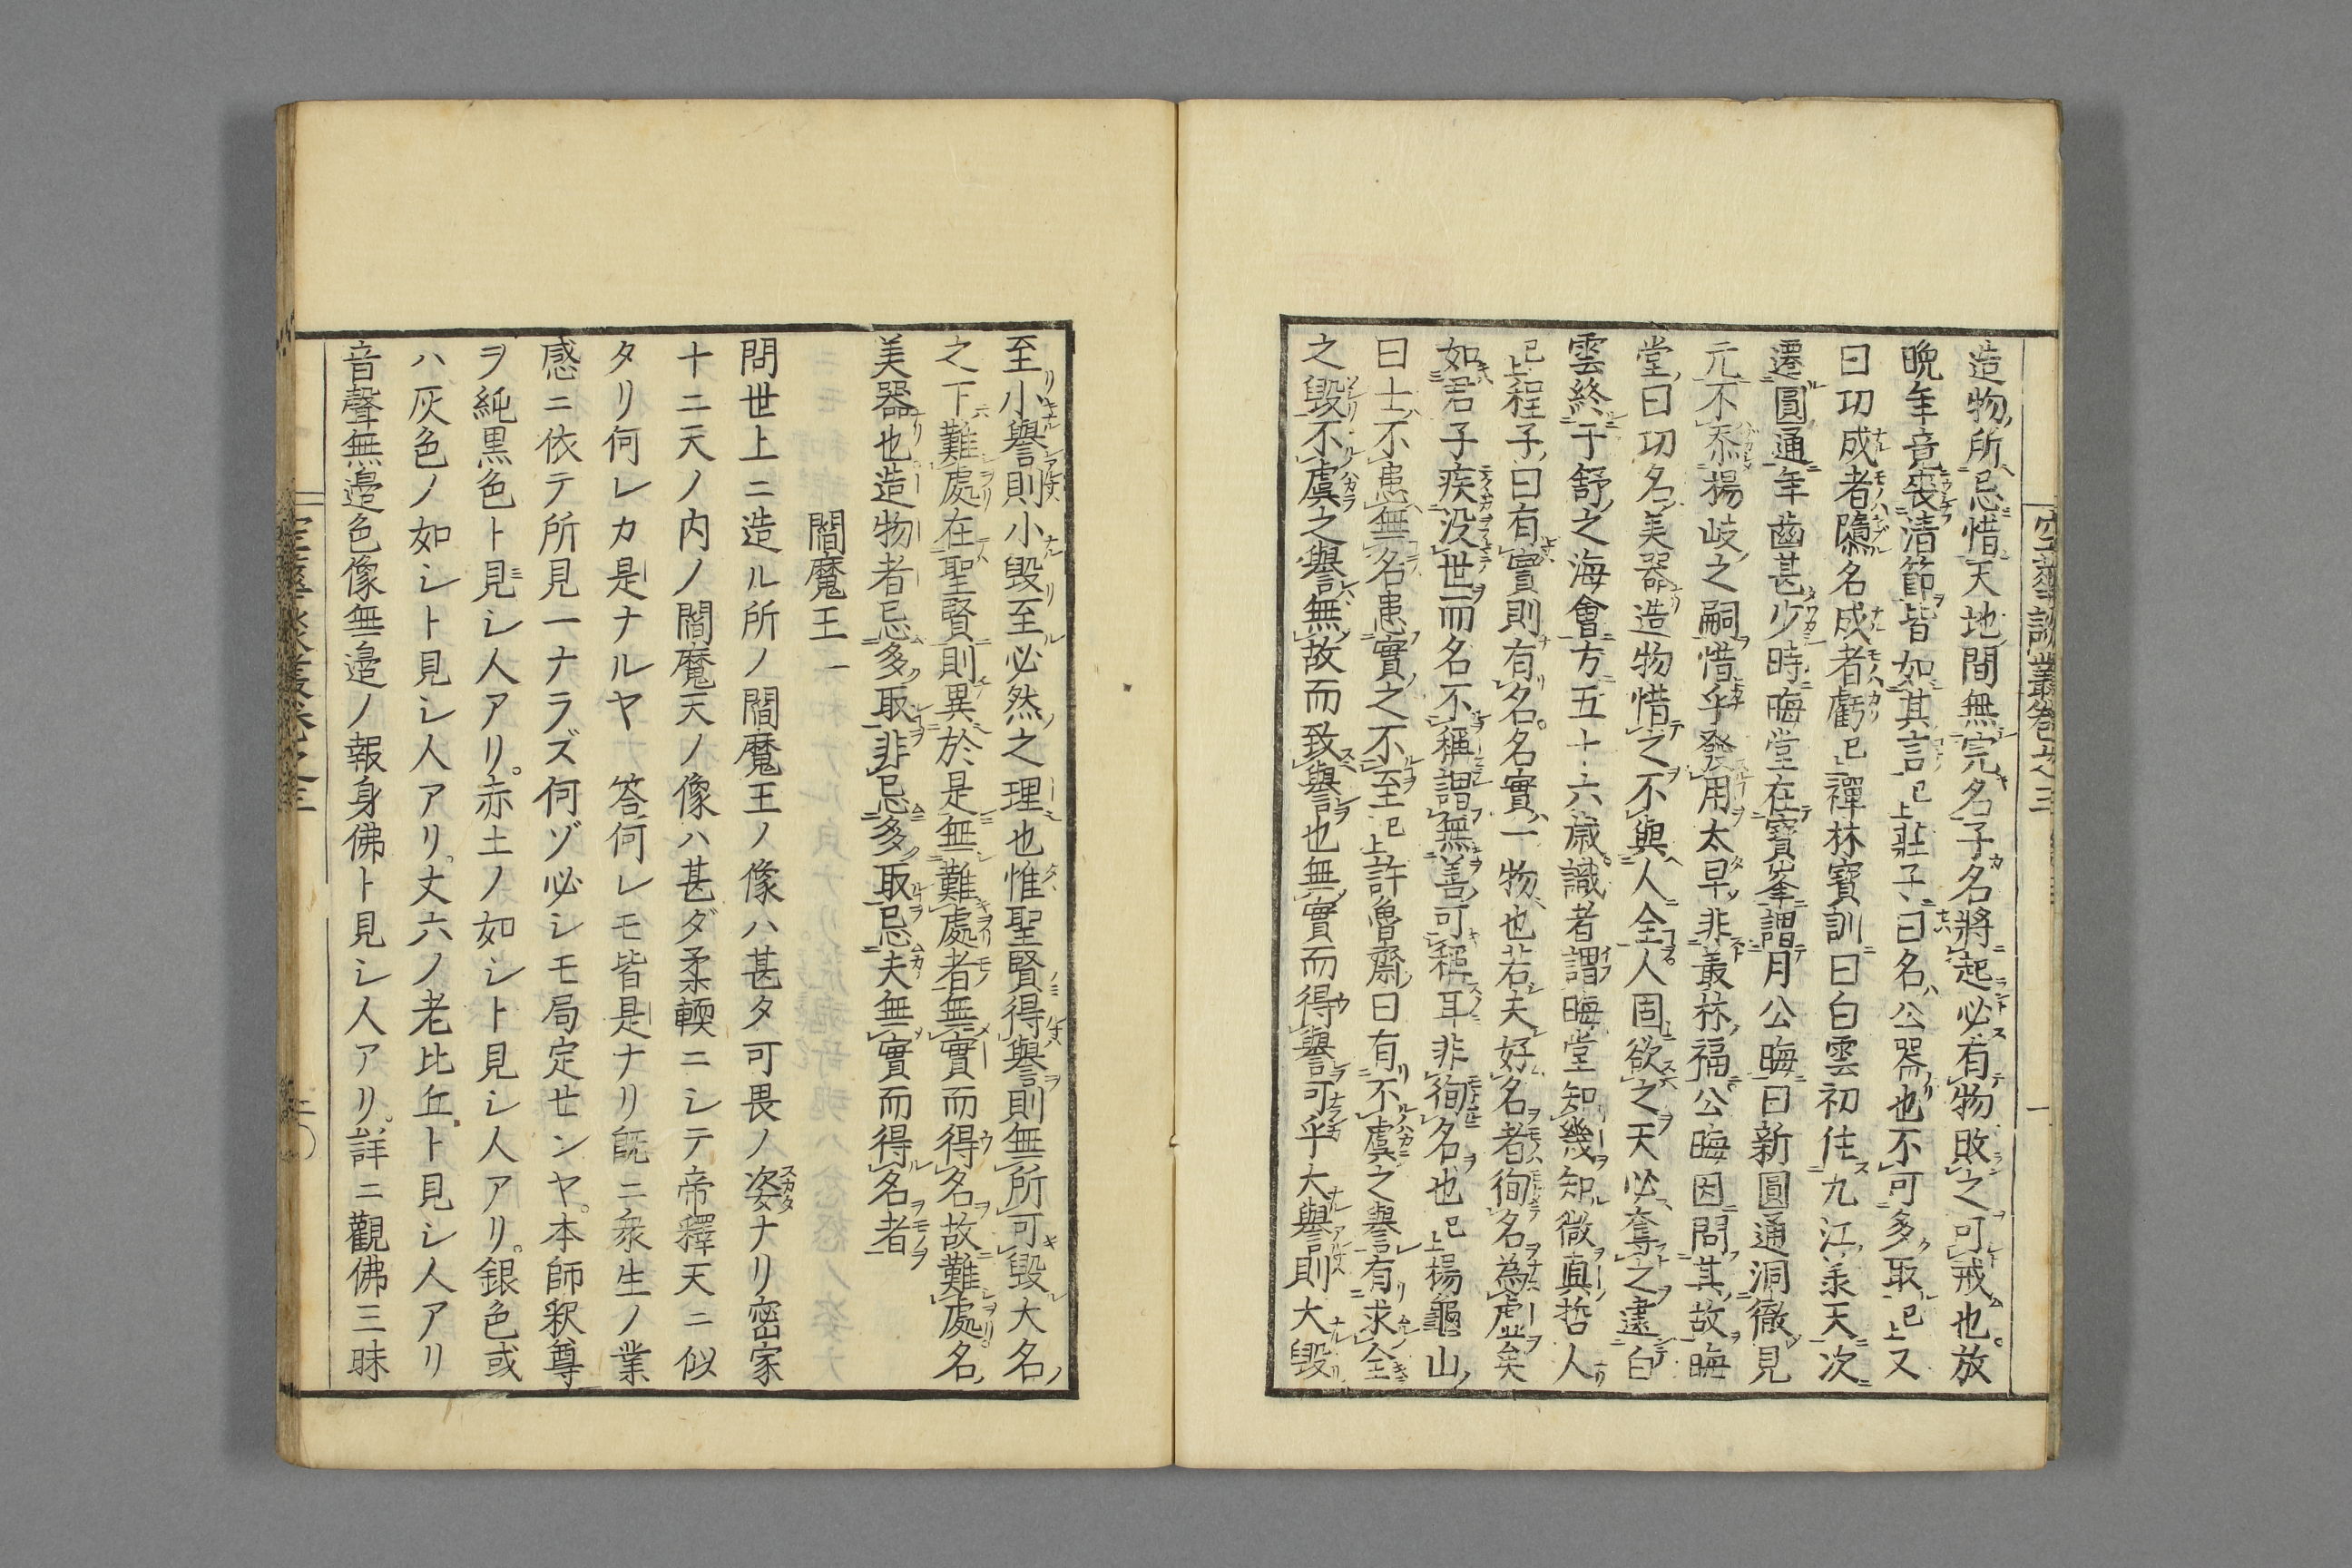 造物所忌惜天地間無完名子名將起必有物敗之可戒也。放
晩年竟喪淸節皆如其言已上莊子曰名公器也不可多取已上又
曰功成者隳名成者虧已上禪林寶訓曰白雲初住九江承天次
遷圓通年齒甚少時晦堂在寶峯謂月公晦曰新圓通洞徹見
元不忝楊岐之嗣惜乎發用太早非叢林福公晦因問其故晦
堂曰功名美器造物惜之不與人全人固欲之天必奪之逮白
雲終于舒之海會方五十六歲。識者謂晦堂知幾知微眞哲人
已上程子曰有實則有名。名實一物也若夫好名者徇名爲虛矣
如君子疾没世而名不稱謂無善可稱耳非徇名也已上楊龜山
曰士不患無名患實之不至已上許魯齋曰有不虞之譽有求全
之毀不虞之譽無故而致譽也無實而得譽可乎大譽則大毀
至小譽則小毀至必然之理也惟聖賢得譽則無所可毀大名
之下難處在聖賢則異於是無難處者無實而得名故難處名
美器也造物者忌多取非忌多取忌夫無實而得名者
閻魔王
問世上ニ造ル所ノ閻魔王ノ像ハ甚タ可畏ノ姿スカタナリ密家
十二天ノ内ノ閻魔天ノ像ハ甚ダ柔輭ニシテ帝釋天ニ似
タリ何レカ是ナルヤ　答何レモ皆是ナリ既ニ衆生ノ業
感ニ依テ所見一ナラズ何ゾ必シモ局定センヤ。本師釈尊
ヲ純黒色ト見シ人アリ。赤土ノ如シト見シ人アリ。銀色或
ハ灰色ノ如シト見シ人アリ。丈六ノ老比丘ト見シ人アリ
音聲無邉色像無邉ノ報身佛ト見シ人アリ。詳ニ觀佛三昧